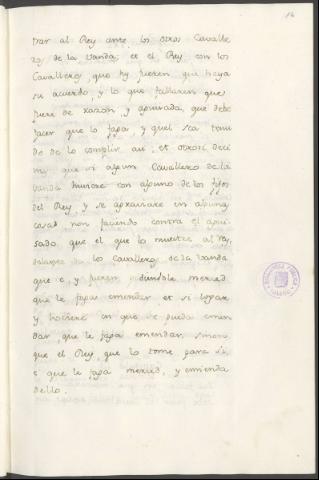 16
trar al Rey ante los otros Cavalle
ros de la vanda; et el Rey con los
Cavalleros, que hy fueren que haya
su acuerdo, y lo que fallaren que
fuere de razon, y apurada, que debe
facer que lo faga, y quel sea tenu
do de lo complir asi, et otrosi deci
mos que si algun Cavallero de la
vanda huviere con alguno de los fijos
del Rey, y se agraviare en alguna
cosa non faciendo contra el
sado, que el que lo muestre al Rey,
los Cavalleros de la vanda
que e, y fueren merced,
que le faga emendar et si lugare
y hoviere en que se pueda emen
dar, que le faga emendar, sinon
que el Rey, que lo tome para si,
e que le faga merced, y emienda
dello.